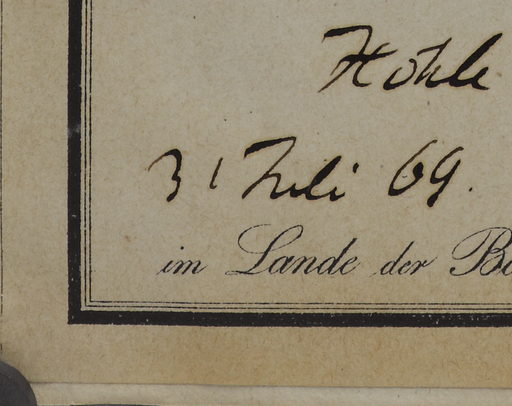 Höhle
31 Juli 69.
im Lande der